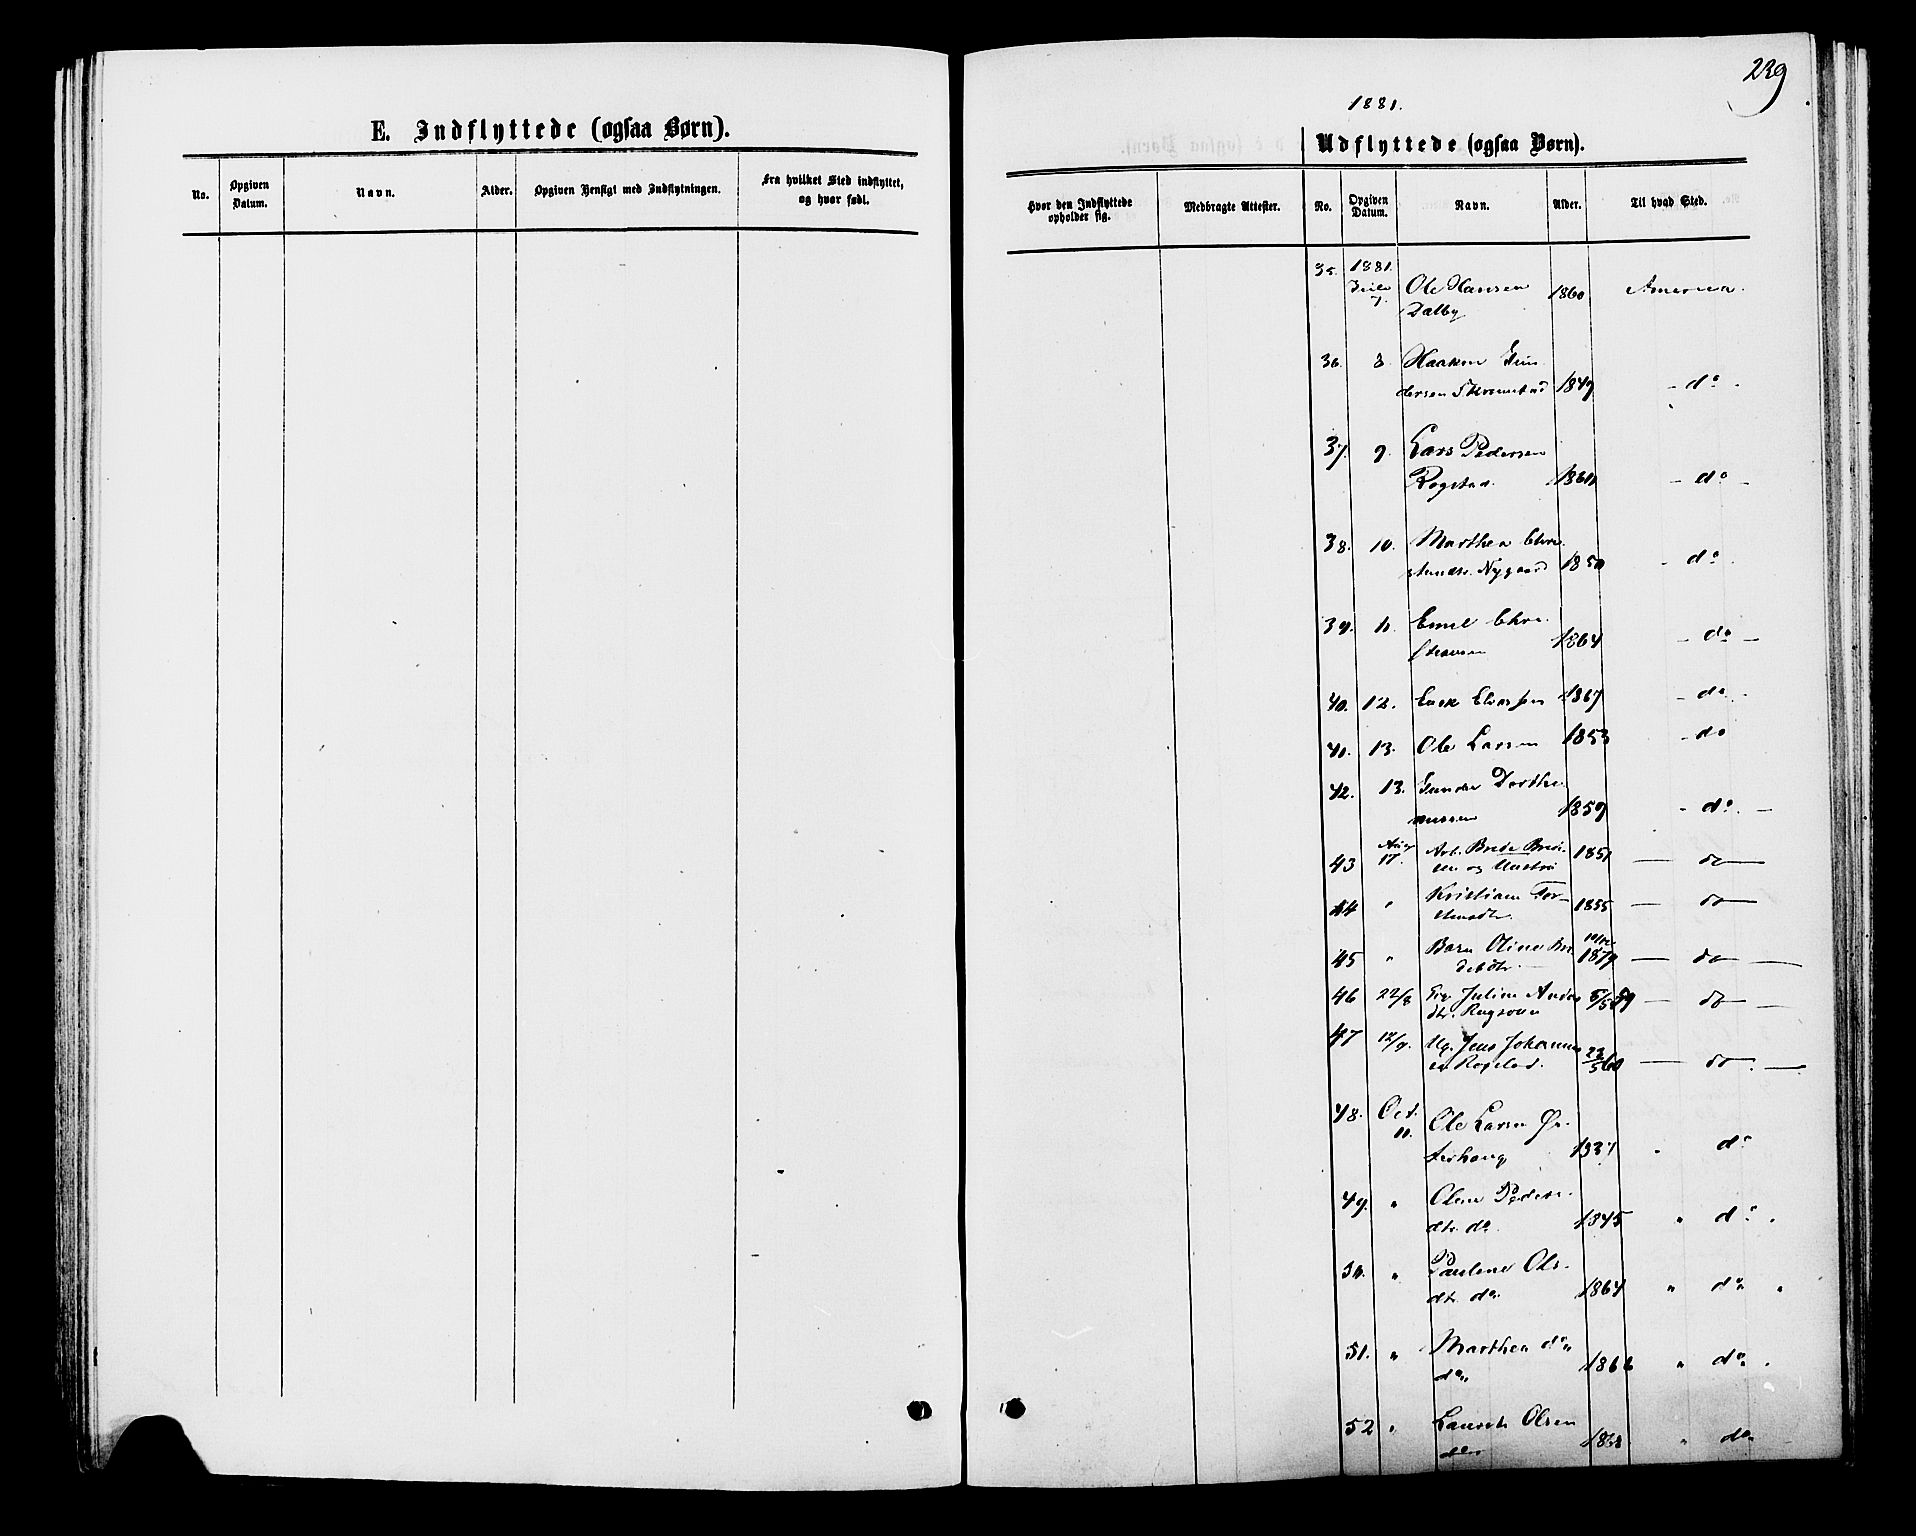 E. Indflyttede (ogsaa Børn).
No.
Opgiven Datum.
Navn.
Alder.
Opgiven Hensigt med Indflytningen.
Fra hvilket Sted indflyttet, og hvor født.
239
1881.
Udflyttede (ogsaa Børn).
Hvor den Indflyttede opholder sig.
Medbragte Attester.
No.
Opgiven Datum.
Navn.
Alder.
Til hvad Sted.
35. 1881.
7. Ole Hansen 1860 America.
Dalby
36. 8. Haakon Gun
dersen 1849 - do -
37. 9. Lars Pedersen
Rogstad. - do -
38. 10. Marthea Chri
Nygaard 1850 - do -
39. 11. Emil Chri
stiansen 1864 - do -
40. 12. 1867 - do -
41. 13. Ole Larsen 1853 - do
42. 13. Gunder Dorthe
1859 - do -
43 Aug 17. Arb. Brede Bred
sen og Hustru - do -
44 " Kristiane Tor
1855 - do -
45 " Barn Oline Bre
desdtr. 1879 - do -
46 22/8 Julius Anders
- do -
47 12/9. Ug. Jens Johannes
en Rogstad. 22/5 60 - do -
48. Oct.
11. Ole Larsen Øs
terhaug 1837 " do
49. " Oline Peders
dtr. do 1845 " do "
50. " Pauline Ols
dtr. do 1864 " do "
51. " Marthea do
do 1866 " do "
52 " Olsen
do " do